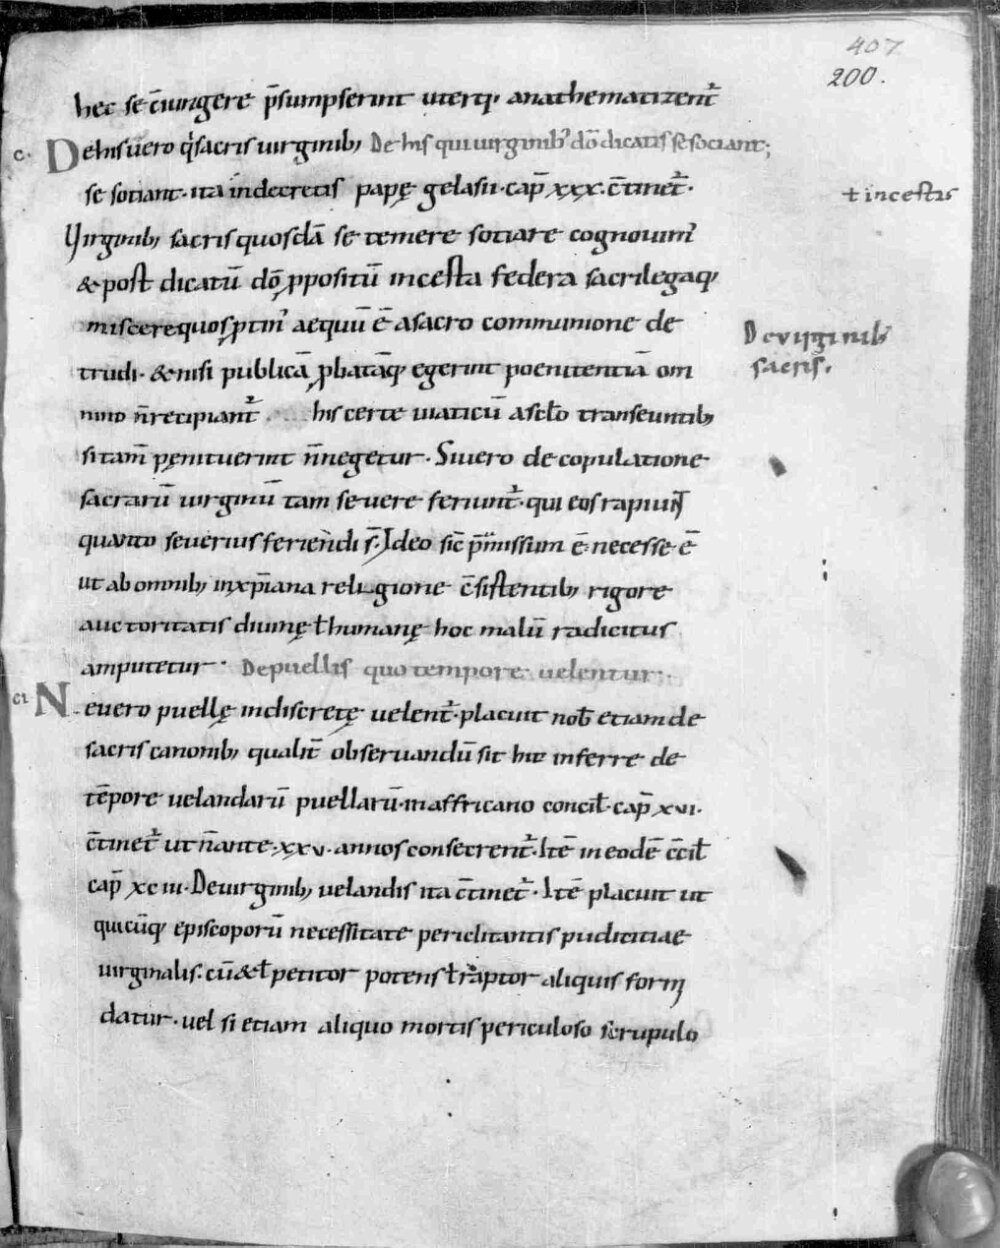 407
200.
hec se c̄iungere p̄sumpserint uterq; anathematizent᷑
c. De his uero q̇ sacris uirginib; De his qui uirginib; dō dicatis se sociant;
se sotiant· ita in decretis papę gelasii· cap̄ xxx· c̄tinet᷑·
+ incestis
Virginib; sacris quosdā se temere sotiare cognouim᷒
& post dicatū dō ꝓpositū incesta federa sacrilegaq;
miscere quos ꝓtin᷒ aequū ē a sacro communione de
De virginib;
sacris.
trudi· & nisi publicā ꝓbatāq; egerint poenitentiā om
nino n̄ recipiant᷑ his certe uiaticū a sclo transeuntib;
si tam̄ pęnituerint n̄ negetur· Si uero de copulatione
sacrarū uirginū tam seuere feriunt᷑· qui eos rapiunt
quanto seuerius feriendi s̄· Ideo sic̄ p̄missum ē· necesse ē
ut ab omnib; in xp̄iana religione c̄sistentib; rigore
auctoritatis diuinę ł humanę hoc malū radicitus
amputetur· De puellis quo tempore uelentur·
ci Ne uero puellę indiscretę uelent᷑· placuit nob̄ etiam de
sacris canonib; qualit̄ obseruandū sit huc inferre de
tēpore uelandarū puellarū· in affricano concil̄· cap̄ xvi·
c̄tinet᷑ ut n̄ ante· xxv· annos consecrent᷑· Itē in eodē c̄cil̄
cap̄ xciii· De uirginib; uelandis ita c̄tinet᷑· Itē placuit ut
quicūq; episcoporū necessitate periclitantis pudicitiae
uirginalis· cū & ł petitor potens ł raptor aliquis formi
datur· uel si etiam aliquo mortis periculoso scrupulo